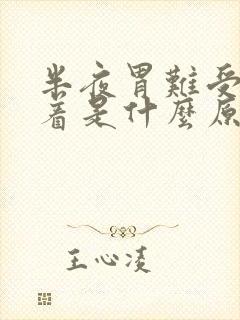 半夜胃難受
着是什麼原
王心凌